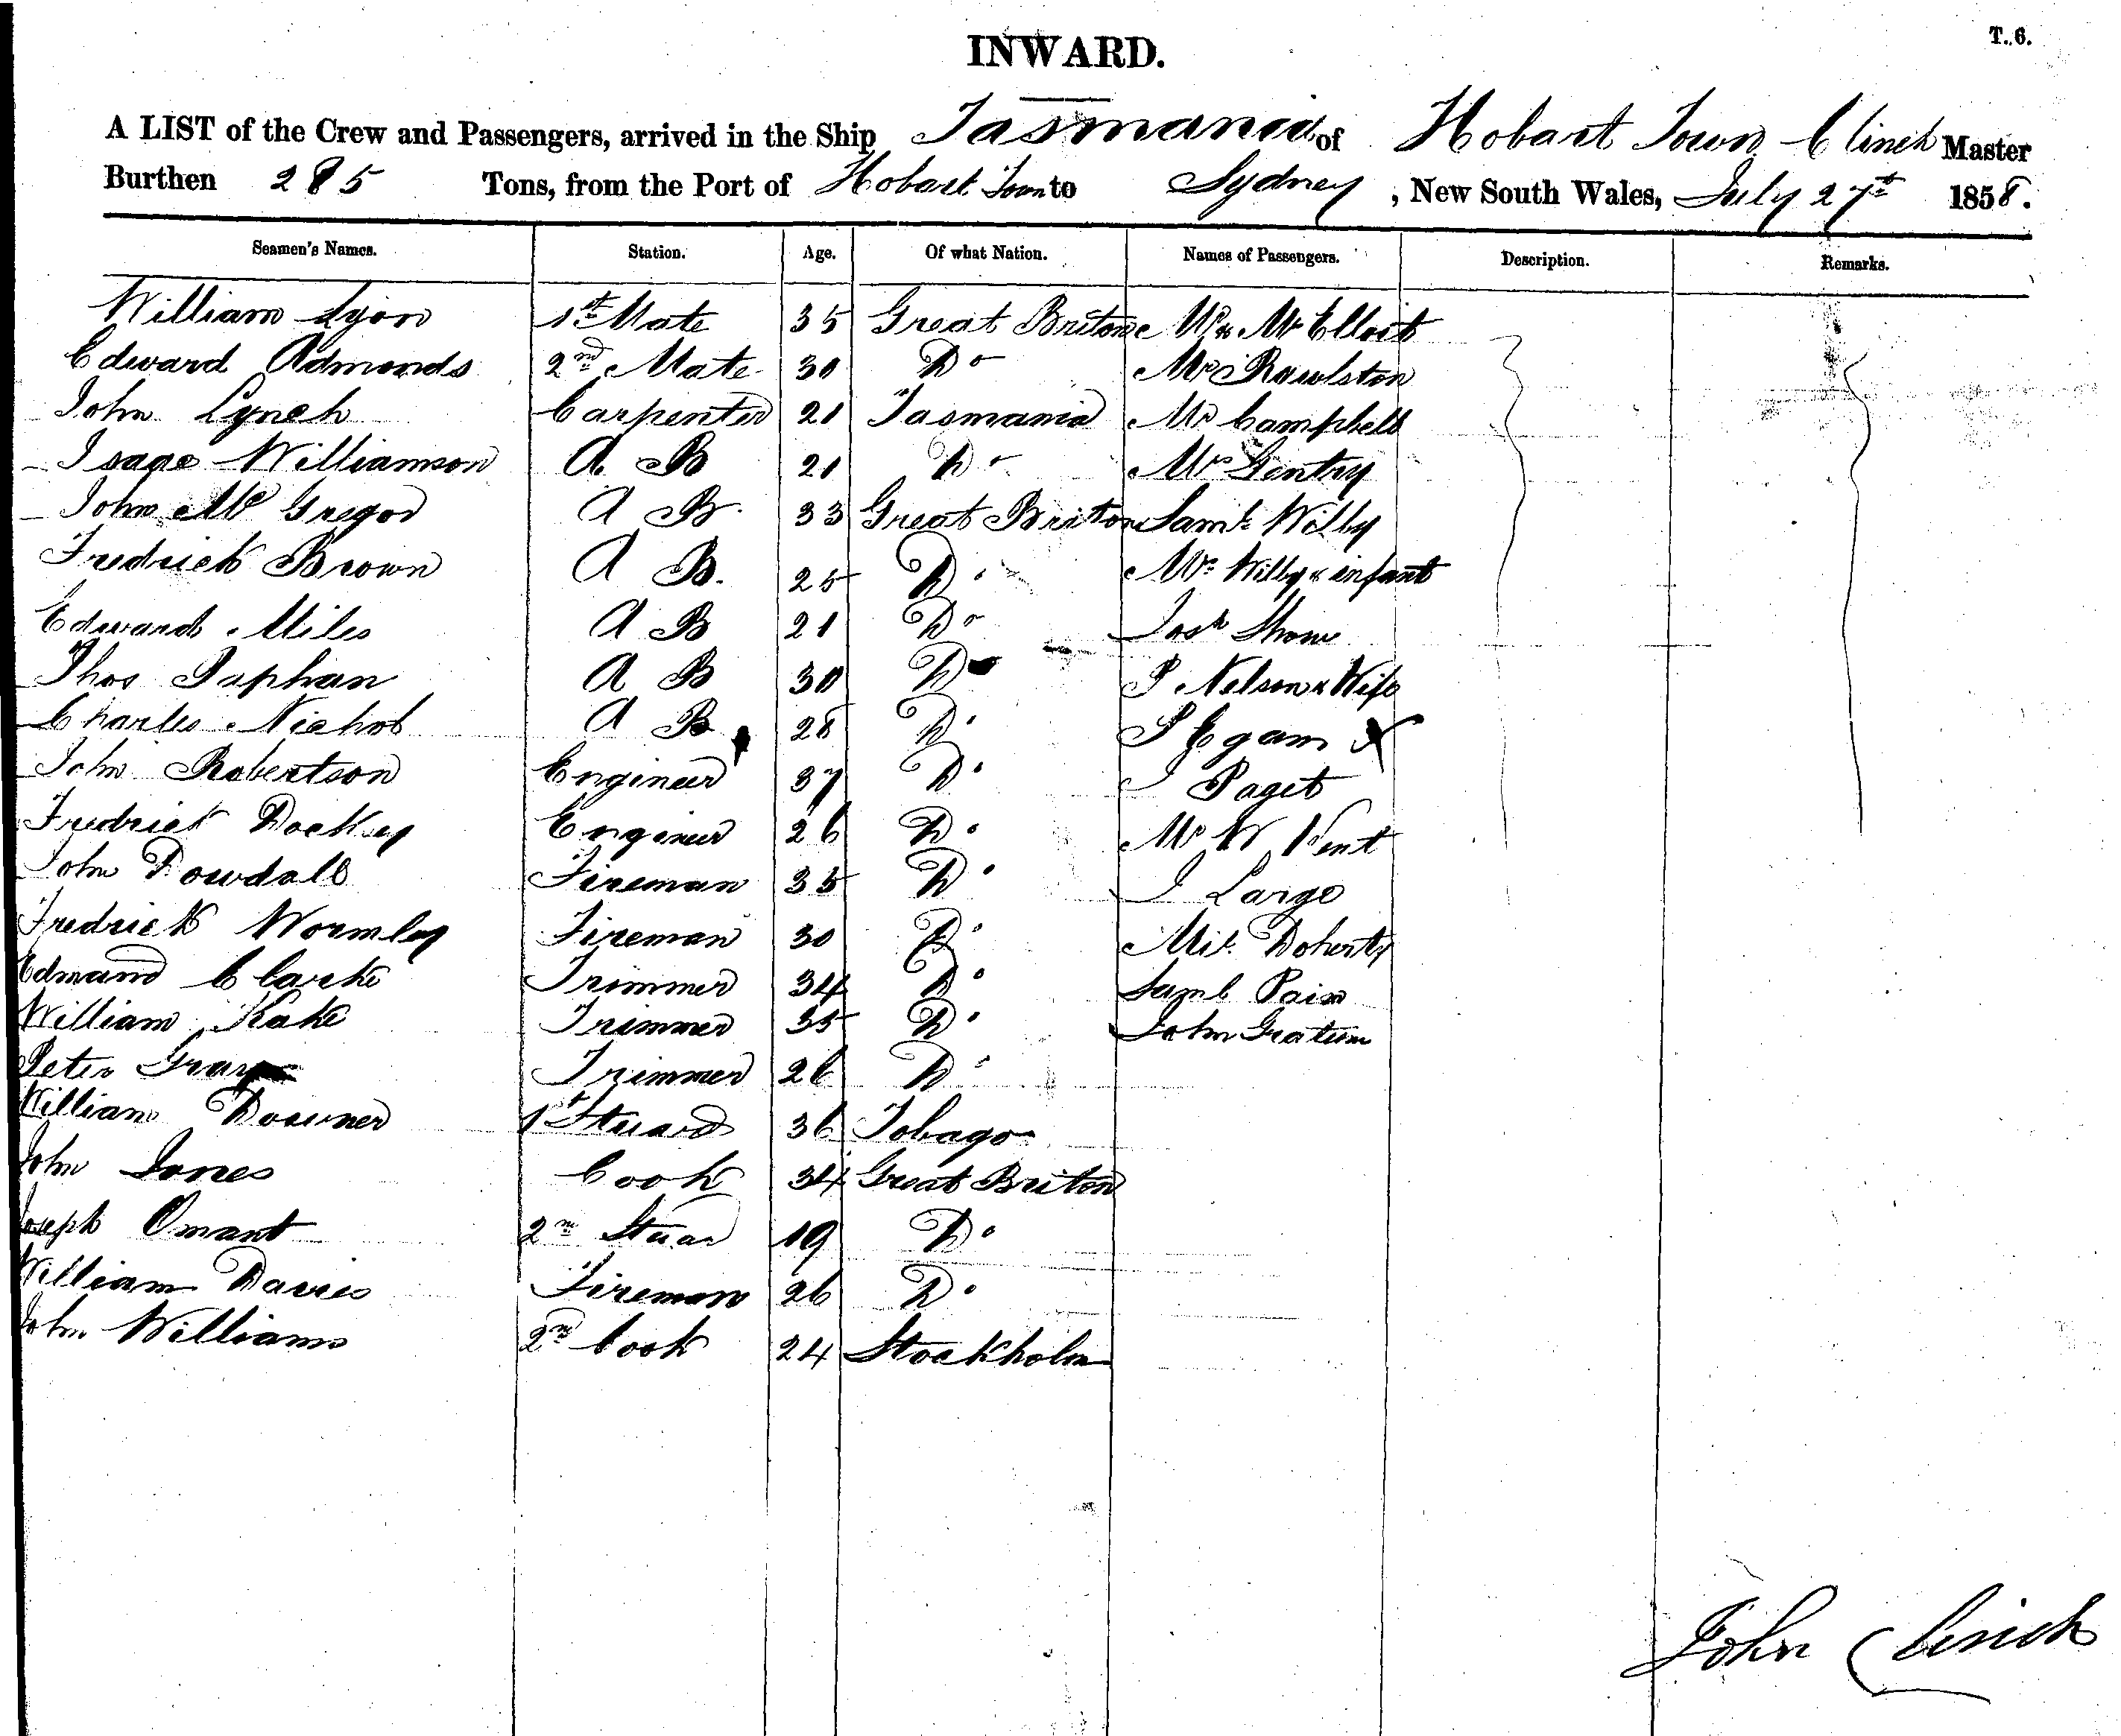 T. 6.
INWARD.
A LIST of the Crew and Passengers, arrived in the Ship Tasmania of Hobart Town Clinch Master
Burthen 285 Tons, from the Port of Hobart Town to Sydney, New South Wales, July 27th 1858.
Seamen's Names. Station. Age. Of what Nation. Names of Passengers. Description. Remarks.
William Lyon 1st Mate 35 Great Briton
Edward Admonds 2nd Mate 30 Do Mr Rawlston
John Lynch Carpenter 21 Tasmania Mr Campbell
Isaac Williamson A B 21 Do Mrs Gentry
John Mc Gregor A B 33 Great Briton Saml Wilby
Fredrick Brown A B. 25 Do Mrs Wilby & infant
Edward Miles A B 21 Do Josh
Thos Paphan A B 30 Do P Nelson & Wife
Charles Nichol A B 28 Do Egam X
John Robertson Engineer 37 Do J Paget
Fredrick Dockey Engineer 26 Do Mr W Kent
John Dowdall Fireman 35 Do J Largo
Fredrick Wormley Fireman 30 Do Doherty
Edmand Clarke Trimmer 34 Do Saml Pain
William Kake Trimmer 35 Do John Gratum
Peter Gray Trimmer 26 Do
William Downer 1st Stuard 36 Tobago
John Jones Cook 34 Great Briton
Joseph Omant 2nd Stuar 19 Do
William Davies Fireman 26 Do
John Williams 2nd Cook 24 Stockholm
John Clinch